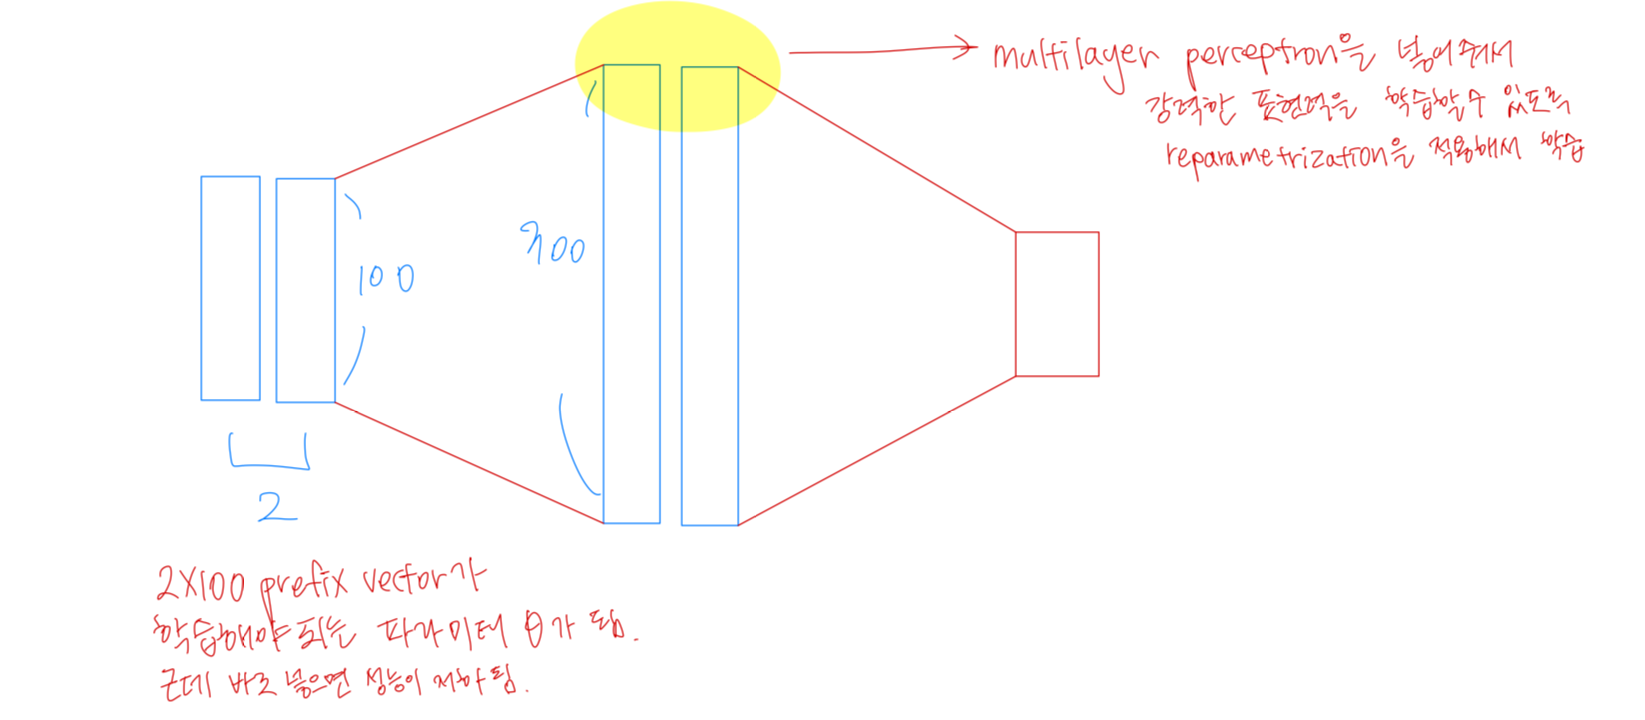 multilayer perceptron을 넣어줘서
강력한 표현력을 학습할 수 있도록
reparametrization을 적용해서 학습
100
2
2X100 prefix vector가
학습해야 되는 파라미터 θ가 됨.
근데 바로 넣으면 성능이 저하됨.